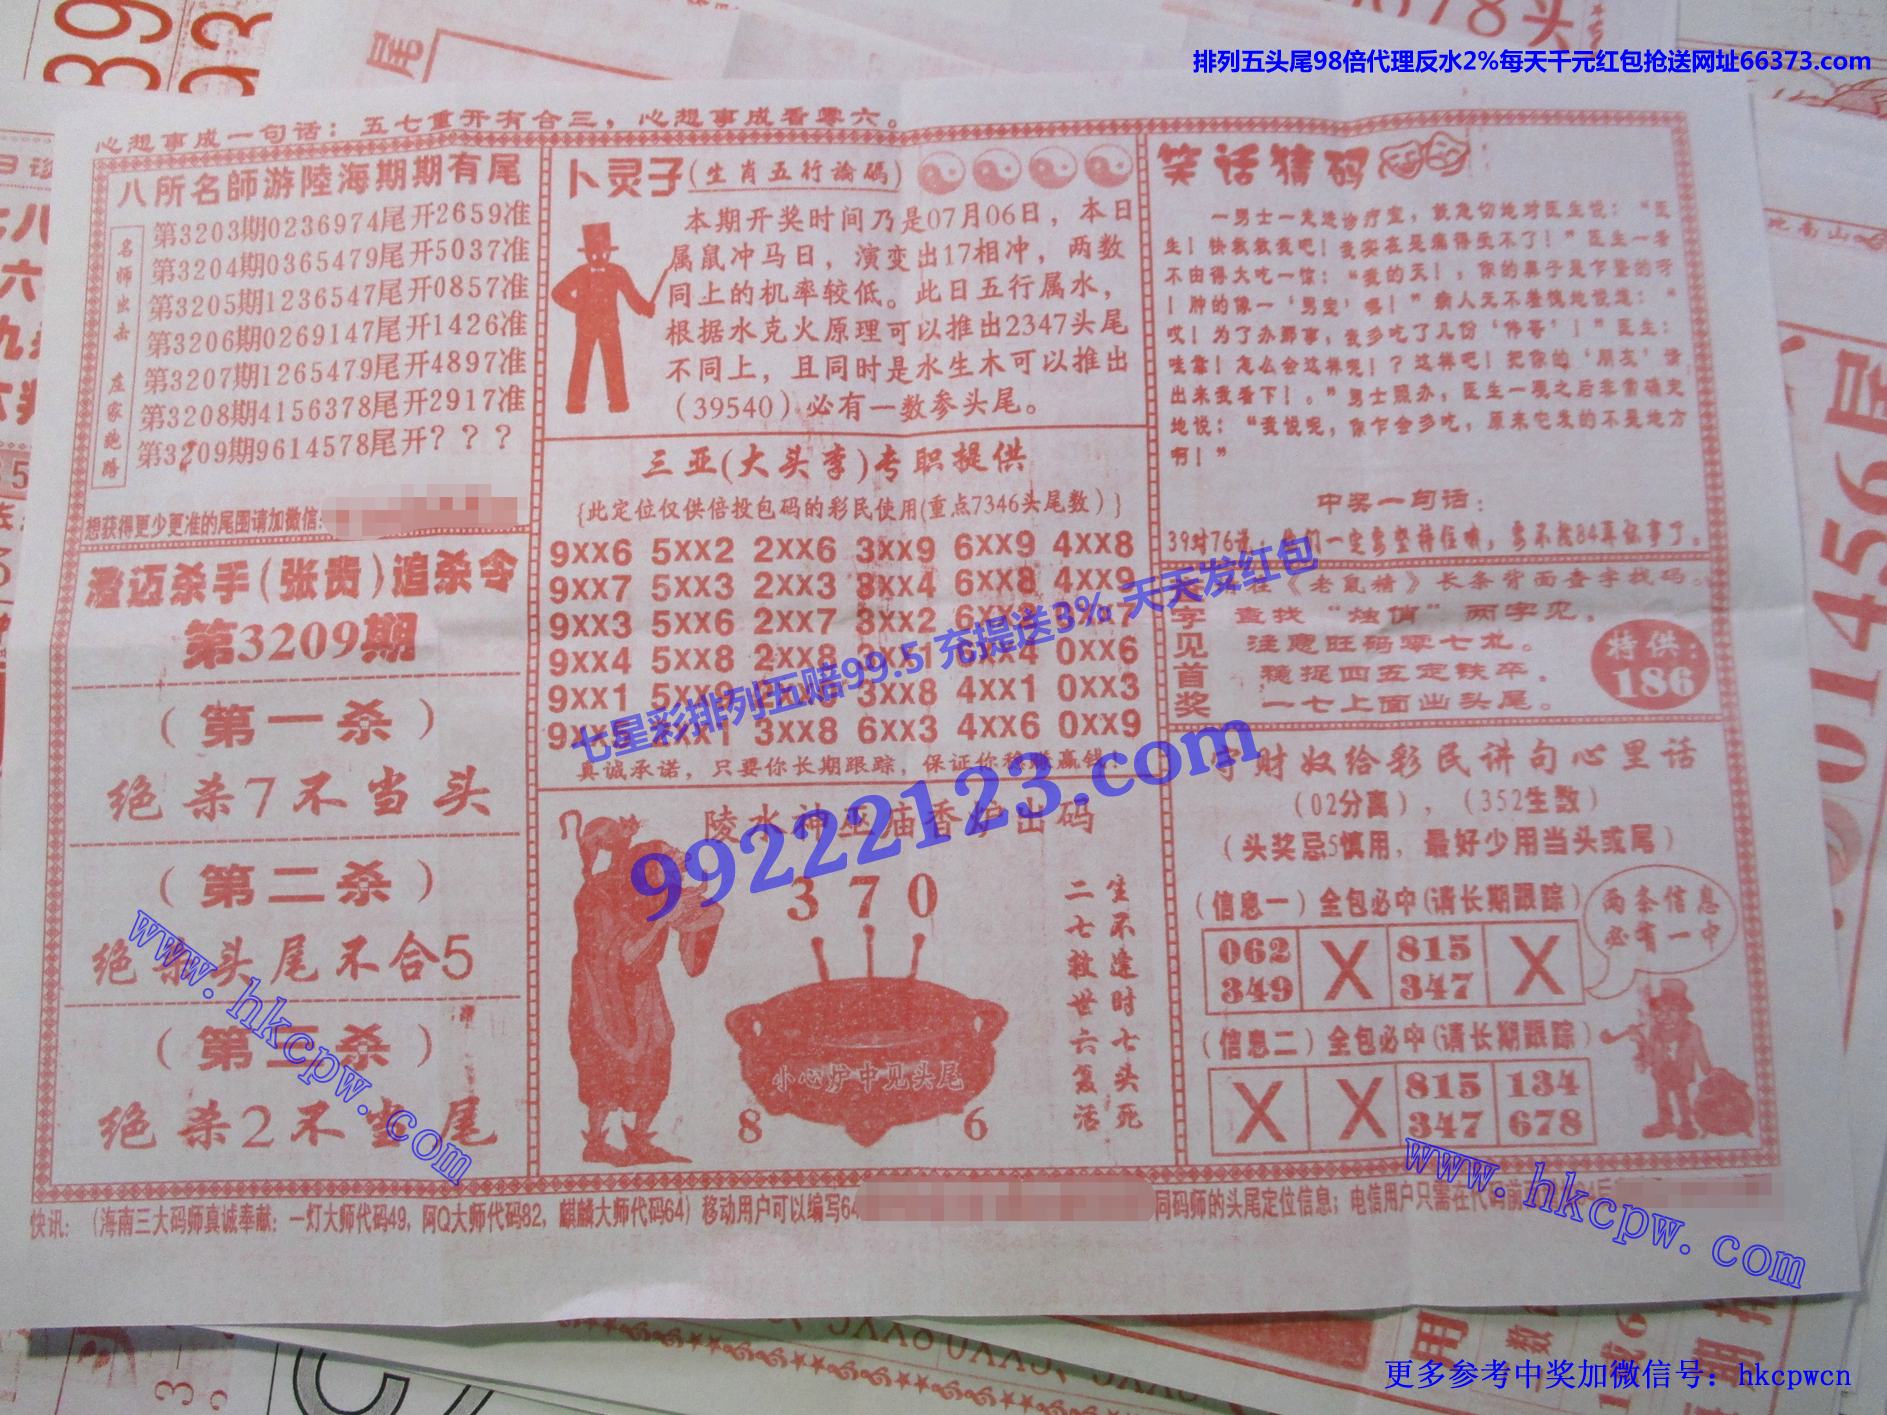 排列五头尾98倍代理反水2%每天千元红包抢送网址66373.com
心想事成一句话：五七重开有合三，心想事成看零六。
八所名師游陸海期期有尾
名师出击 庄家跑路
第3203期0236974尾开2659准
第3204期0365479尾开5037准
第3205期1236547尾开0857准
第3206期0269147尾开1426准
第3207期1265479尾开4897准
第3208期4156378尾开2917准
第3209期9614578尾开？？？
想获得更少更准的尾围请加微信:
澄迈杀手(张贵)追杀令
第3209期
（第一杀）
绝杀7不当头
（第二杀）
绝杀头尾不合5
（第三杀）
绝杀2不当尾
卜灵子(生肖五行論碼)
本期开奖时间乃是07月06日，本日
属鼠冲马日，演变出17相冲，两数
同上的机率较低。此日五行属水，
根据水克火原理可以推出2347头尾
不同上，且同时是水生木可以推出
（39540）必有一数参头尾。
三亚(大头李)专职提供
{此定位仅供倍投包码的彩民使用(重点7346头尾数）}
9XX6 5XX2 2XX6 3XX9 6XX9 4XX8
9XX7 5XX3 2XX3 3XX4 6XX8 4XX9
9XX3 5XX6 2XX7 3XX2
9XX4 5XX8 2XX8 0XX6
9XX1 3XX8 4XX1 0XX3
3XX8 6XX3 4XX6 0XX9
真诚承诺，只要你长期跟踪，保证你稳赚赢钱！
陵水神巫庙香炉出码
3 7 0
生不逢时七头死
二七救世六复活
小心炉中见头尾
8 6
笑话猜码
一男士一走进诊疗室，就急切地对医生说：“医
生！快救救我吧！我实在是痛得受不了！”医生一看
不由得大吃一惊：“我的天！，你的鼻子是乍整的呀
！肿的像一‘男宝’嘿！”病人无不羞愧地说道：“
哎！为了办那事，我多吃了几份‘伟哥’！”医生：
哇靠！怎么会这样呢！？这样吧！把你的‘朋友’请
出来我看下！。”男士照办，医生一观之后非常确定
地说：“我说呢，你乍会多吃，原来它发的不是地方
啊！”
中奖一句话：
39对76说，我们一定要坚持住哦，要不然84再惊事了。
在《老鼠精》长条背面查字找码。
字见首奖
查找“烛俏”两字见，
注意旺码零七九。
稳捉四五定铁卒．
一七上面出头尾。
特供：
186
守财奴给彩民讲句心里话
（02分离），（352生数）
（头奖忌5慎用，最好少用当头或尾）
（信息一）全包必中(请长期跟踪)
062 X 815 X
349 347
两条信息
必有一中
（信息二）全包必中(请长期跟踪)
X X 815 134
347 678
快讯：（海南三大码师真诚奉献：一灯大师代码49，阿Q大师代码82，麒麟大师代码64）移动用户可以编写64
同码师的头尾定位信息；电信用户只需在代码前
七星彩排列五赔99.5 充提送3% 天天发红包
99222123.com
www.hkcpw.com
www.hkcpw.com
更多参考中奖加微信号：hkcpwcn